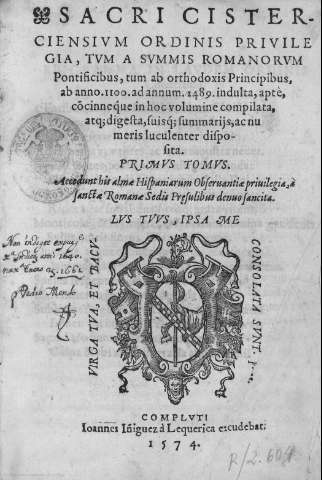 SACRI CISTER-
CIENSIVM ORDINIS PRIVILE
GIA, TVM A SVMMIS ROMANORVM
Pontificibus, tum ab orthodoxis Principibus,
ab anno. 1100. ad annum. 1489. indulta, aptè,
cōcinneque in hoc volumine compilata,
atq; digesta, suisq; summarijs, ac nu
meris luculenter dispo-
sita.
PRIMVS TOMVS.
Accedunt his almæ Hispaniarum Observantiæ privilegia, à
sanctæ Romanæ Sedis Præsulibus denuo sancita.
VIRGA TVA, ET BACV-
LVS TVVS, IPSA ME
CONSOLATA SVNT.
Pedro
COMPLVTI
Ioannes Iñiguez à Lequerica excudebat.
1574.